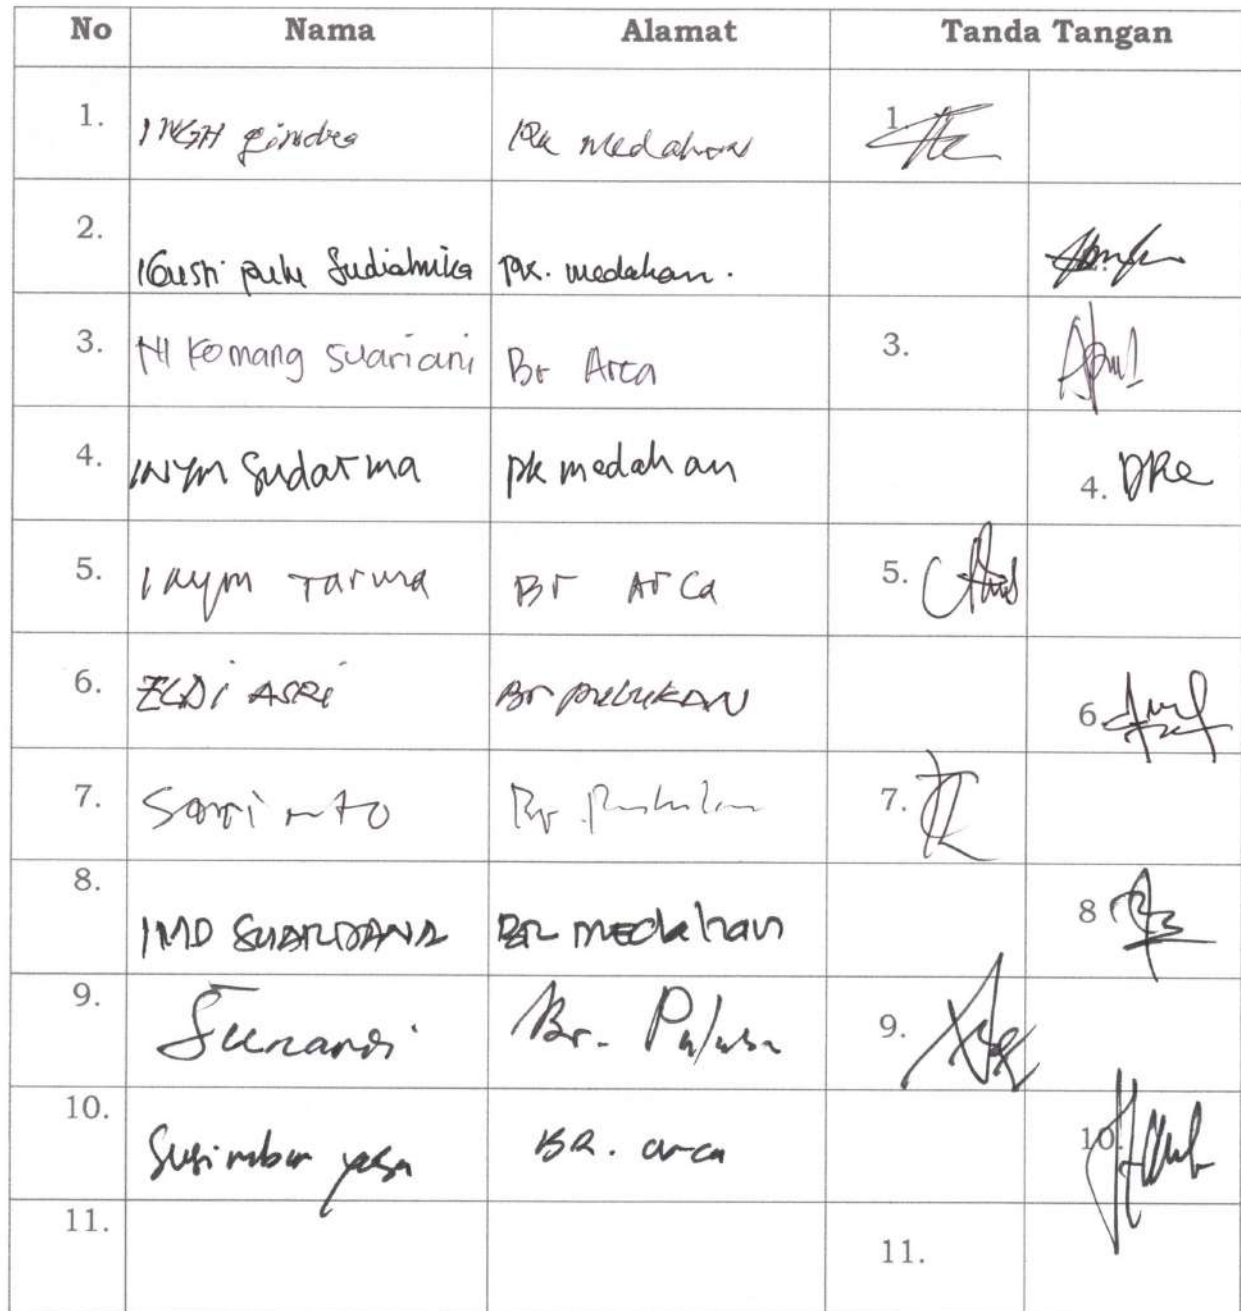 No Nama Alamat Tanda Tangan
1. INGH Pk medahan 1.
2. IGusti putu Sudiatmika Pk. medahan.
3. NI Komang Suariani Br Arca 3.
4. INYM Sudarma pk medahan 4.
5. I nym Tarma Br Arca 5.
6. ELDI ASRI Br 6.
7. Br. 7.
8. IMD SUARDANA BR medahan 8
9. Sunardi Br. 9.
10. yasa BR. arca 10.
11. 11.